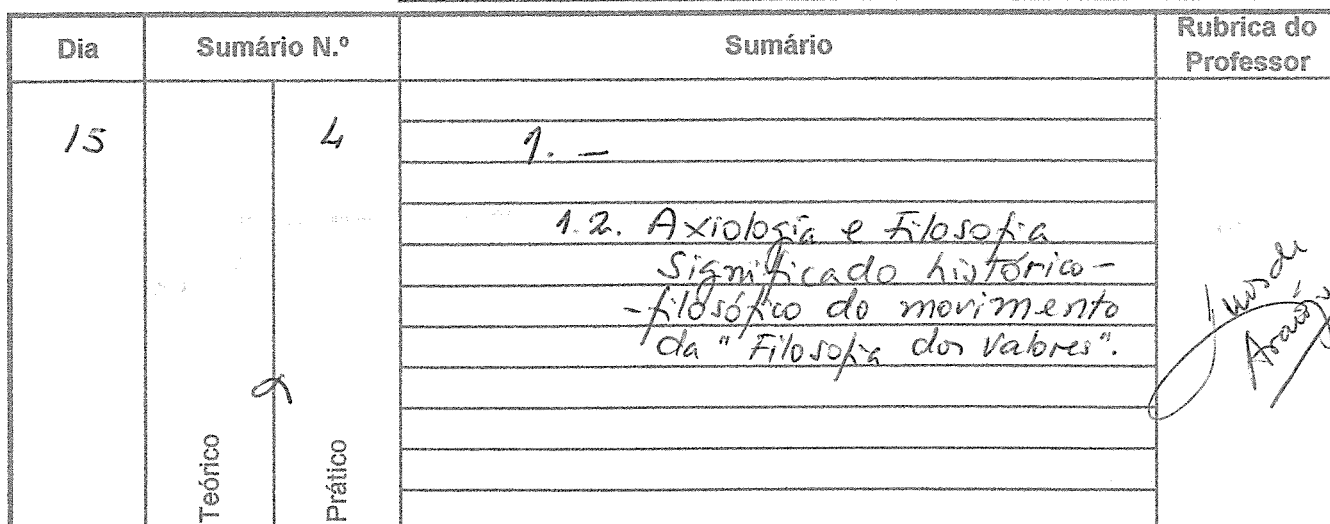 Dia
Sumário N.º
Sumário
Rubrica do
Professor
15
4
1. —
1.2. Axiologia e Filosofia
Significado histórico-
-filosófico do movimento
da "Filosofia dos Valores".
Luís de
Araújo
Teórico
Prático